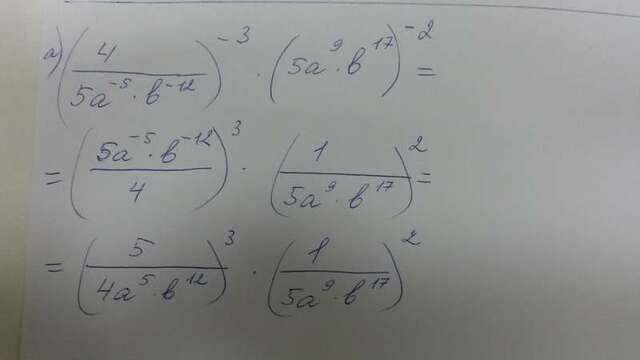 а) (4 / 5a⁻⁵·b⁻¹²)⁻³ · (5a⁹·b¹⁷)⁻² =
= (5a⁻⁵·b⁻¹² / 4)³ · (1 / 5a⁹·b¹⁷)² =
= (5 / 4a⁵·b¹²)³ · (1 / 5a⁹·b¹⁷)²